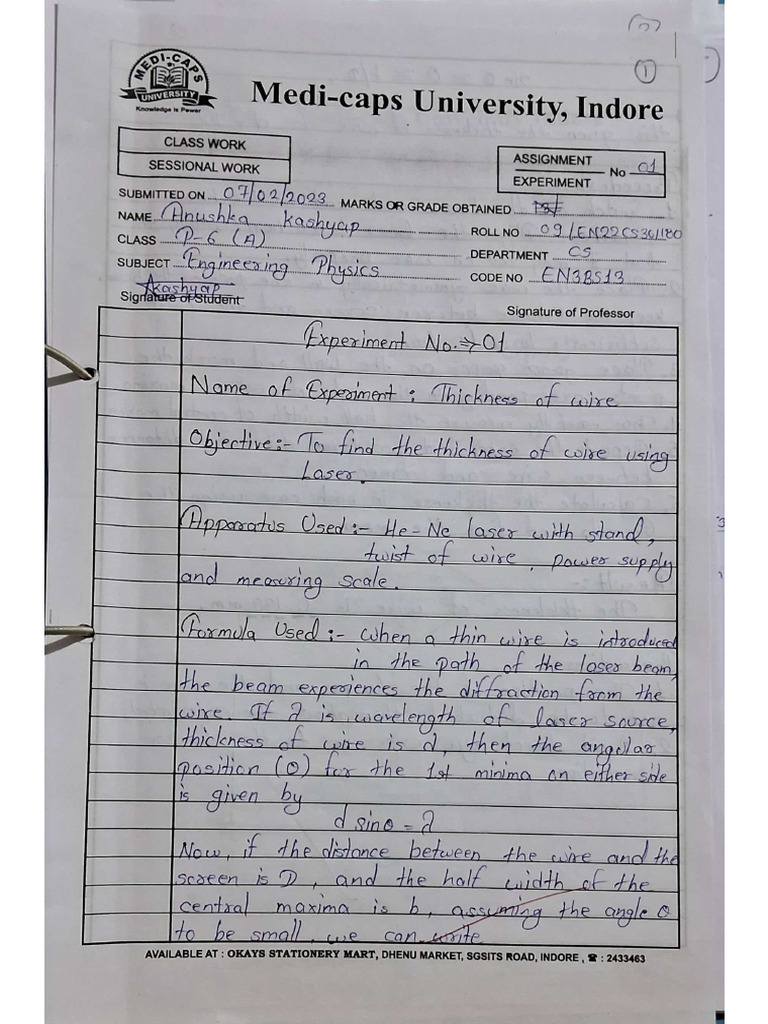 1
MEDI-CAPS
UNIVERSITY
Knowledge is Power
Medi-caps University, Indore
CLASS WORK
SESSIONAL WORK
ASSIGNMENT
EXPERIMENT
No 01
SUBMITTED ON 07/02/2023 MARKS OR GRADE OBTAINED
NAME Anushka Kashyap ROLL NO 09/EN22CS301180
CLASS P-6 (A) DEPARTMENT CS
SUBJECT Engineering Physics CODE NO EN3BS13
Akashyap
Signature of Student Signature of Professor
Experiment No.⇒01
Name of Experiment : Thickness of wire
Objective:- To find the thickness of wire using
Laser.
Apparatus Used:- He-Ne laser with stand,
twist of wire, power supply
and measuring scale.
Formula Used:- When a thin wire is introduced
in the path of the laser beam,
the beam experiences the diffraction from the
wire. If λ is wavelength of laser source,
thickness of wire is d, then the angular
position (θ) for the 1st minima on either side
is given by
d sinθ = λ
Now, if the distance between the wire and the
screen is D, and the half width of the
central maxima is b, assuming the angle θ
to be small, we can write
AVAILABLE AT : OKAYS STATIONERY MART, DHENU MARKET, SGSITS ROAD, INDORE , ☎ : 2433463